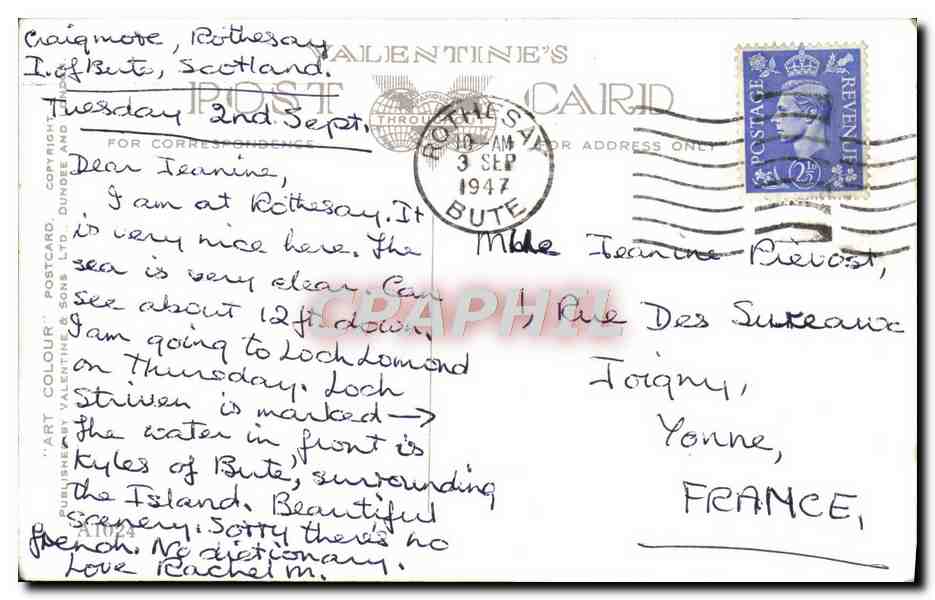 Craigmore, Rothesay
I. of Bute, Scotland.
Tuesday 2nd Sept.
Dear Jeanine,
I am at Rothesay. It
is very nice here. The
sea is very clear. Can
see about 12ft. down.
I am going to Loch Lomond
on Thursday. Loch
Striven is marked →
The water in front is
Kyles of Bute, surrounding
the Island. Beautiful
scenery. Sorry there's no
french. No dictionary.
Love Rachel M.
VALENTINE'S
POST CARD
THROUGHOUT
FOR CORRESPONDENCE
FOR ADDRESS ONLY
ROTHESAY
10 - AM
3 SEP
1947
BUTE
POSTAGE
REVENUE
2½D
Mlle Jeanine Prévost,
1, Rue Des Sureaux
Joigny,
Yonne,
FRANCE,
"ART COLOUR" POSTCARD. COPYRIGHT
PUBLISHED BY VALENTINE & SONS LTD., DUNDEE AND
A1024
CPAPHIL